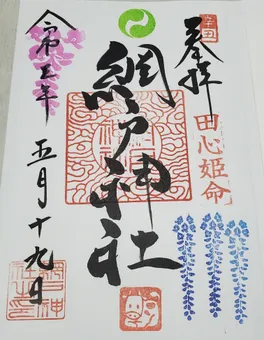 辛丑
奉拝
田心姫命
網戸神社
令和三年
五月十九日